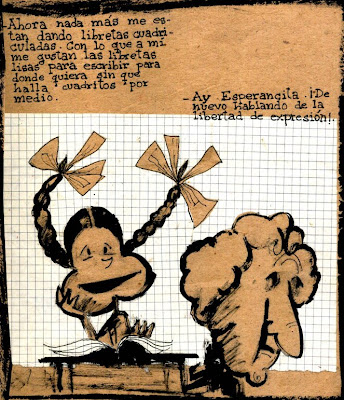 -Ahora nada más me es-
tan dando libretas cuadri-
culadas. Con lo que a mí
me gustan las libretas
lisas para escribir para
donde quiera sin que
halla cuadritos por
medio.
-Ay Esperancita. ¡De
nuevo hablando de la
libertad de expresión!.